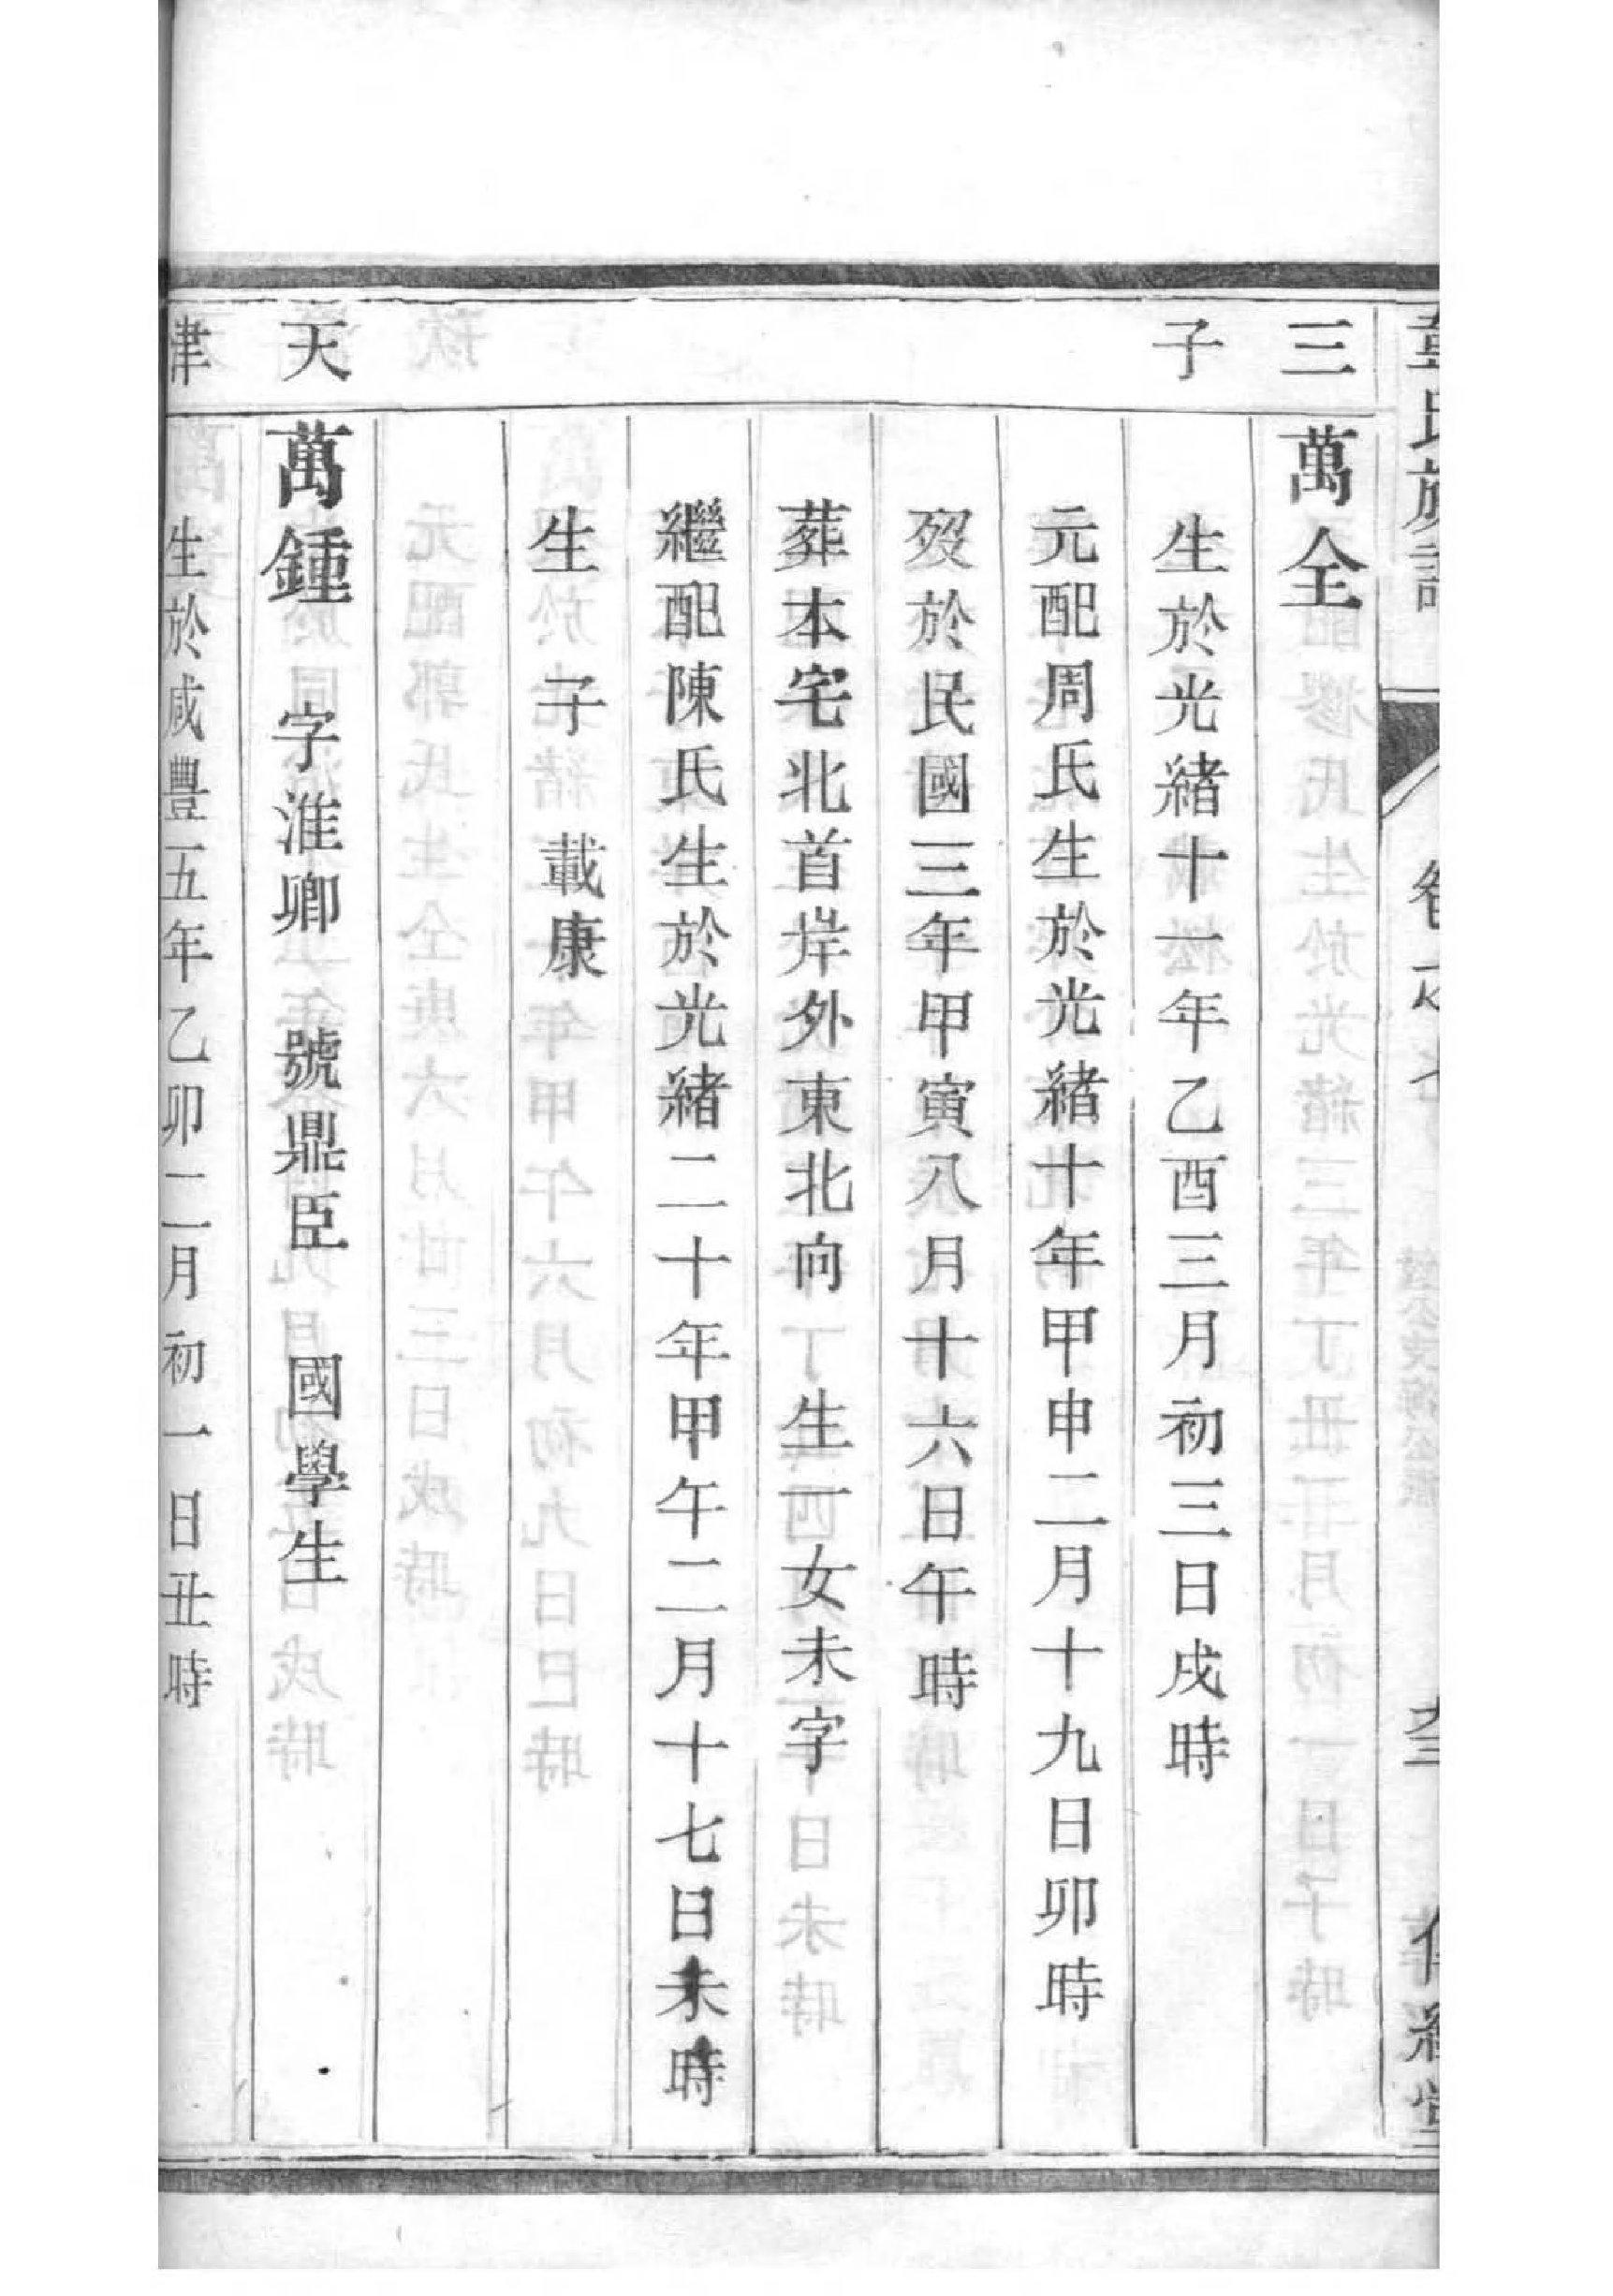 氏族譜
三
子
萬全
生於光緒十一年乙酉三月初三日戌時
元配周氏生於光緒十年甲申二月十九日卯時
歿於民國三年甲寅八月十六日午時
葬本宅北首岸外東北向　生一女未字
繼配陳氏生於光緒二十年甲午二月十七日未時
生子　載康
天
萬鍾　字淮卿　號鼎臣　國學生
津
生於咸豐五年乙卯二月初一日丑時